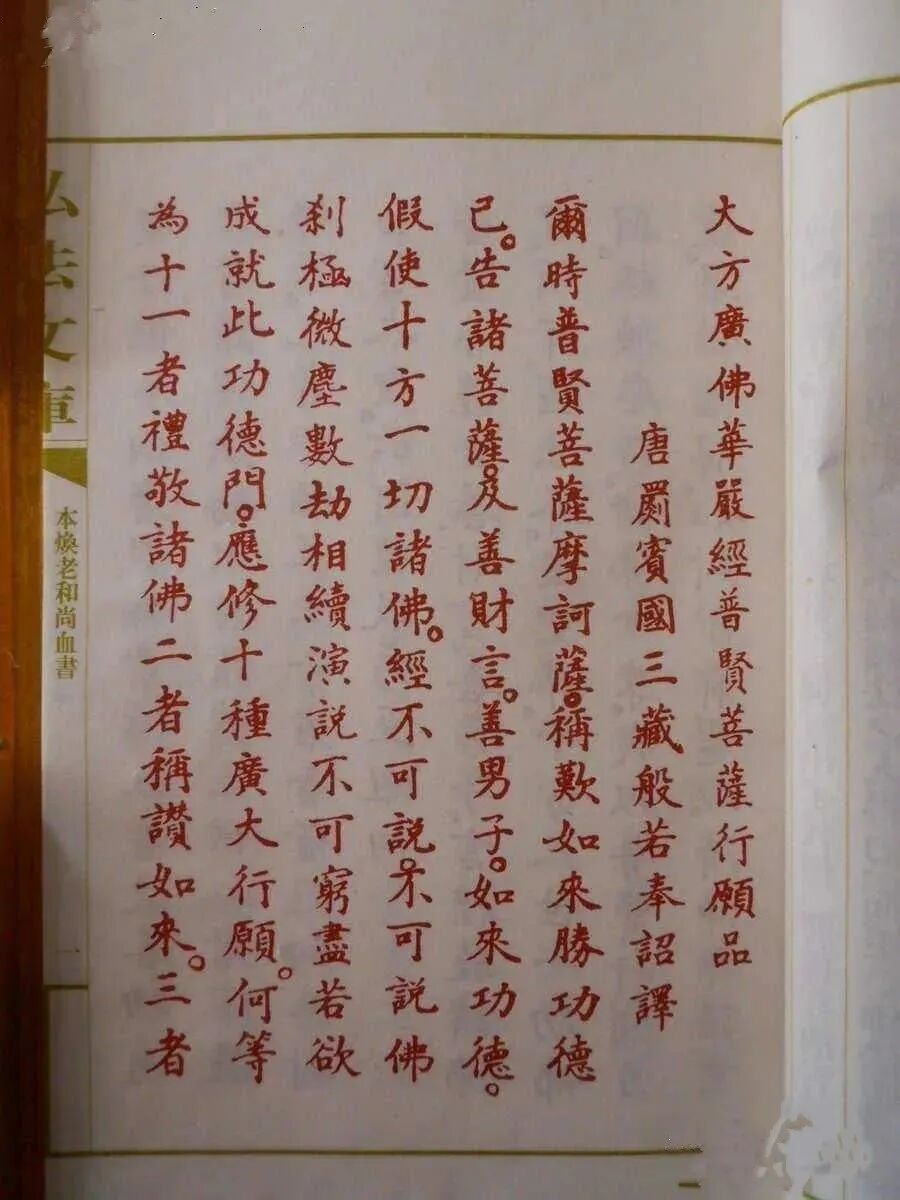 大方廣佛華嚴經普賢菩薩行願品
唐罽賓國三藏般若奉詔譯
爾時普賢菩薩摩訶薩。稱歎如來勝功德
已。告諸菩薩。及善財言。善男子。如來功德。
假使十方一切諸佛。經不可說。不可說佛
剎極微塵數劫相續演說不可窮盡若欲
成就此功德門。應修十種廣大行願。何等
為十一者禮敬諸佛二者稱讚如來。三者
弘法文庫
本煥老和尚血書
一